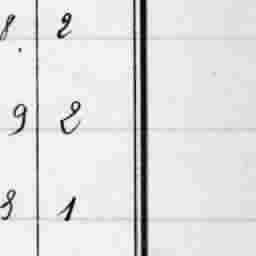 8. 2
9 2
8 1